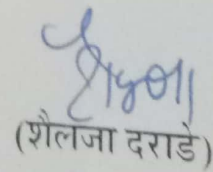 (शैलजा दराडे)